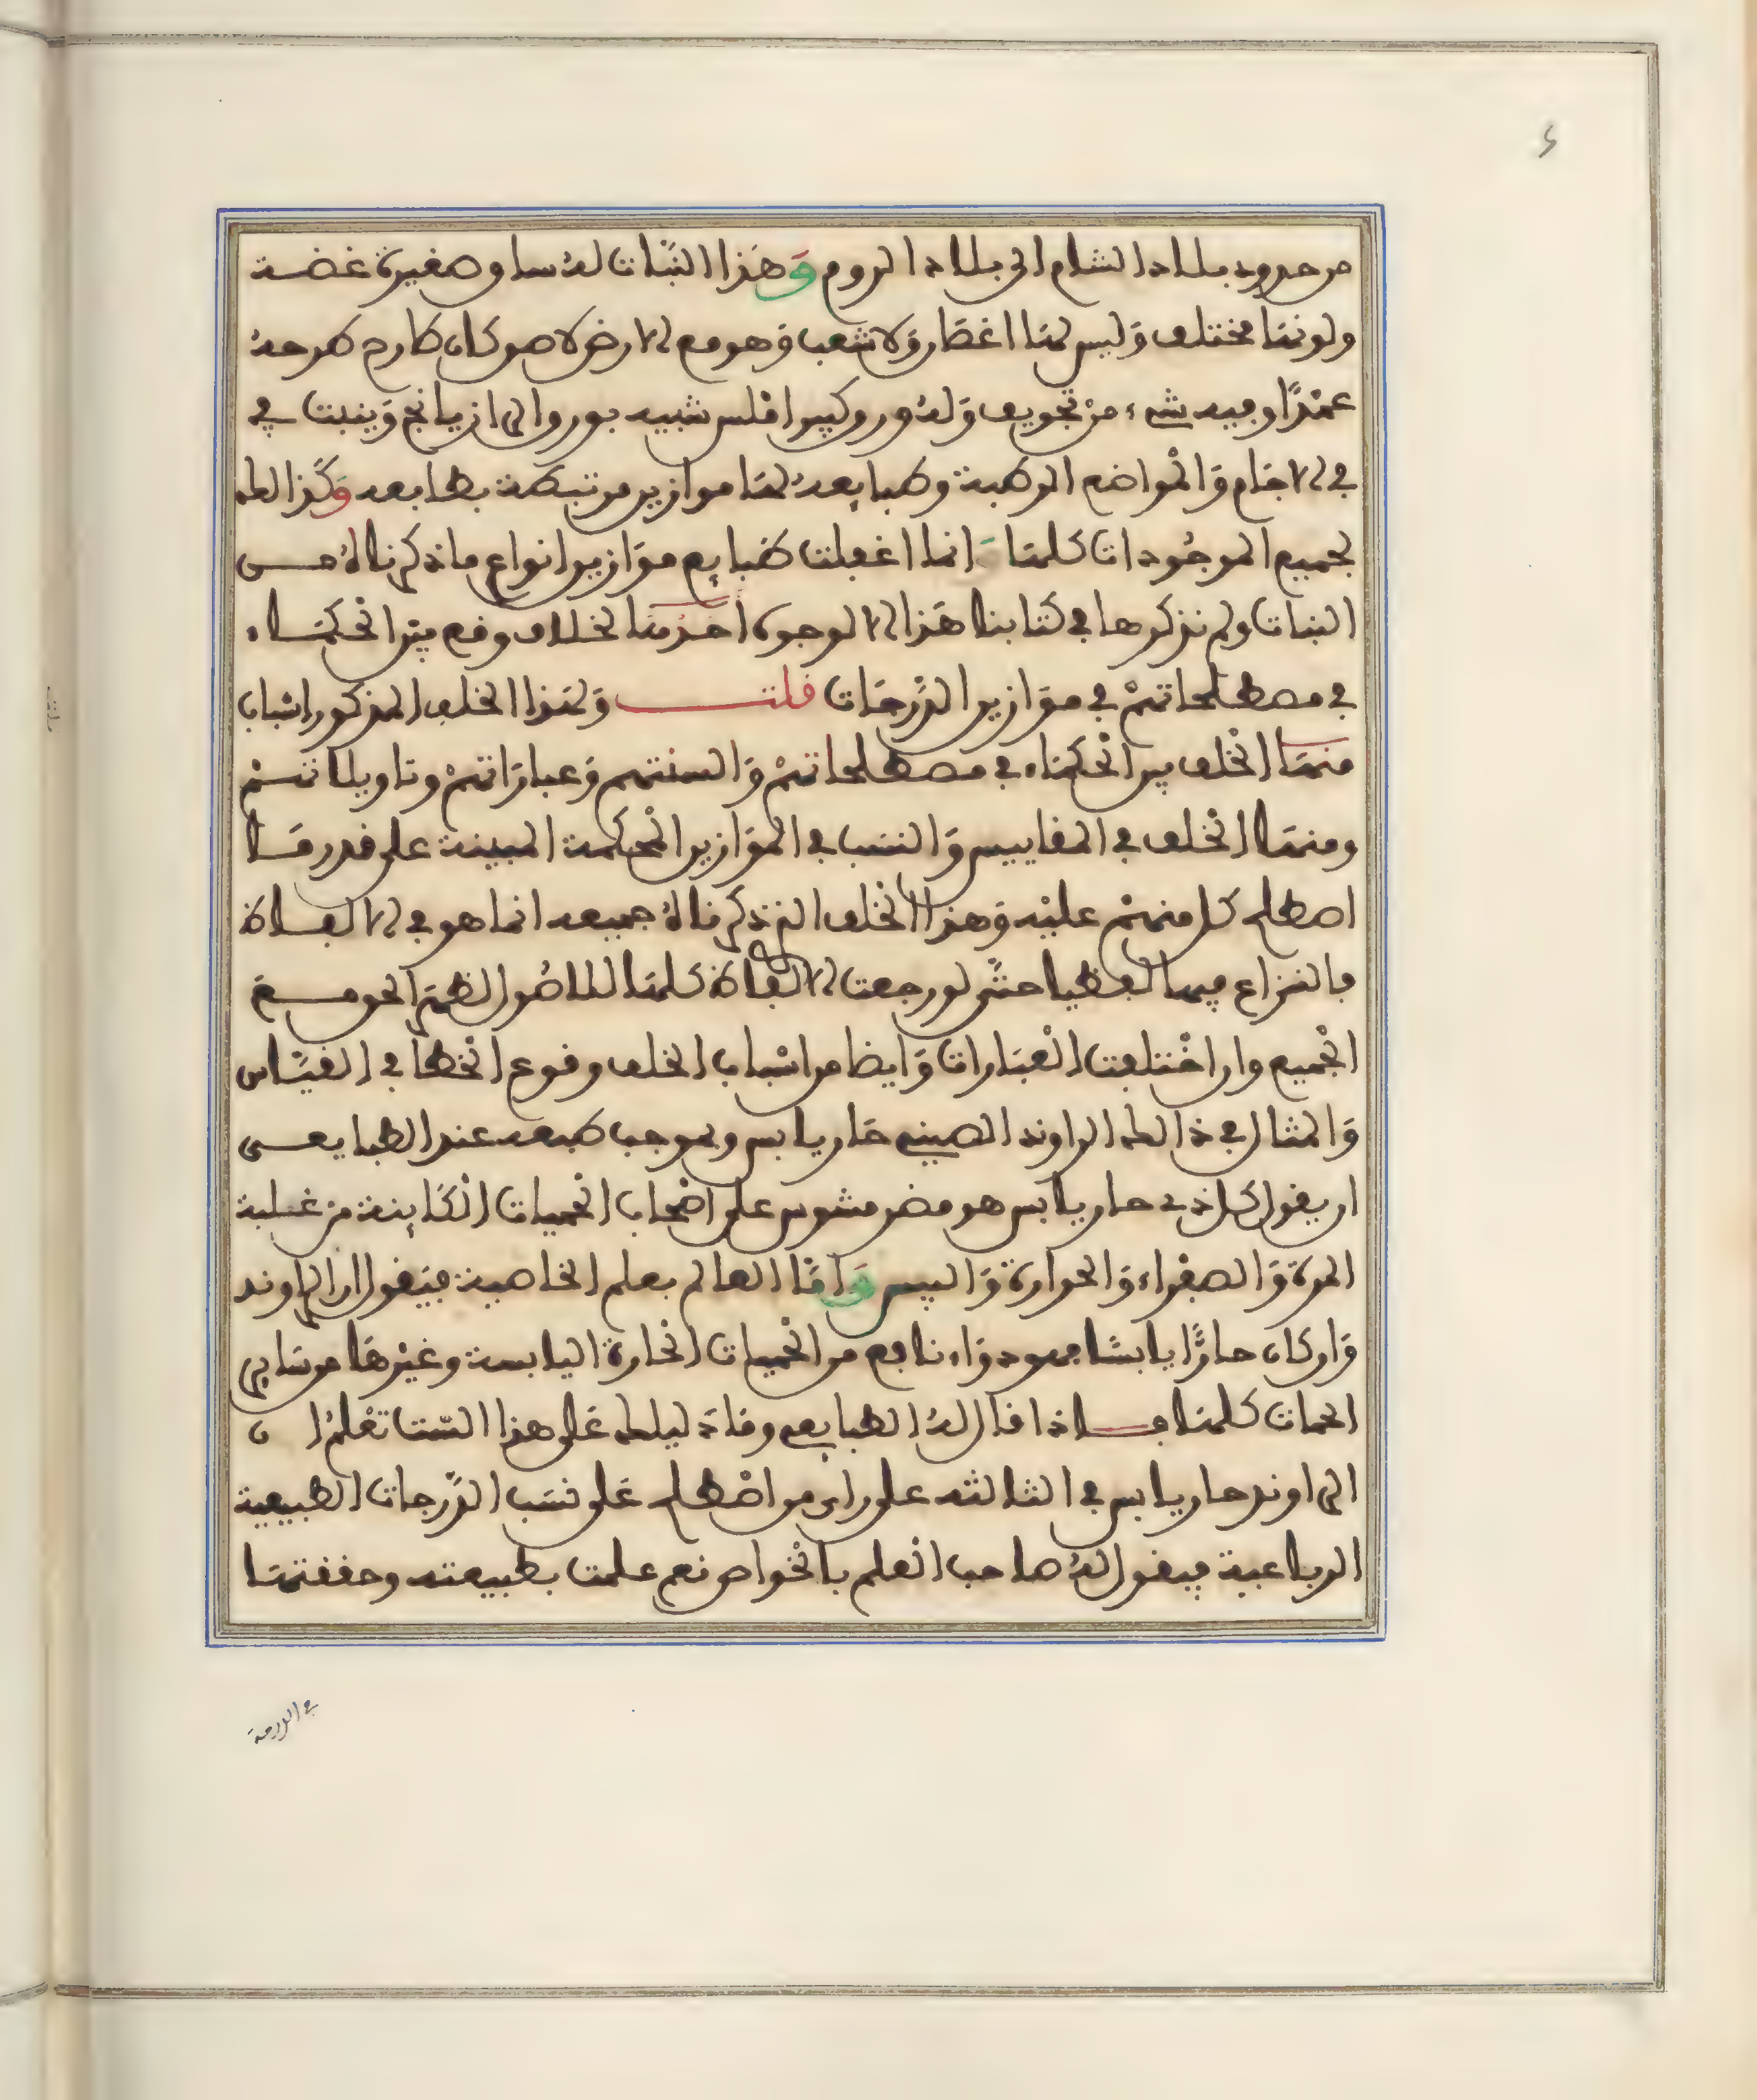 من حدود بلاد الشام الى بلاد الروم وَهَذا النَّبات لهُ ساق صغيرة غضة
ولونها مختلف وَليس لها اغصَان وَلا شعب وَهو مع الارض لاصق كان طارح طرحهُ
عمْدًا وفيه شيء منْ تجويف وَلهُ ورق كبير املس شبيه بورق الرازيانج وَينبت في
في الاجَام وَالْمواضع الرطبة وطبايعهُ لهَا موازين مرتبطة بطبايعه وَكَذا لك
لجميع الموجُودات كلهَا انما اغفلت طبايع موَازين انواع ما ذكرناهُ من
النبات ولم نذكرها في كتابنا هَذا الا لوجوه احَدُهَا لخلاف وقع بيْن الْحكمَاء
في مصطلحاتهمْ في موَازين الدَّرجَات قلت وَلهَذا الخلف المذكور اسْباب
منهَا الْخلف بين الْحكمَاء في مصطلحاتهمْ وَالسنتهم وَعبارَاتهمْ وتاويلاتهمْ
ومنهَا الْخلف في المقاييس وَالنسَب في الموَازين الْمحكمة المبينة على قدر مَا
اصطلح كل منهمْ عليْه وَهذا الْخلف الذي ذكرناهُ جميعه انما هو في الالفاظ
فالنزاع فيها لفظيا حتَّى لو رجعت الالفاظ كلهَا للاصُول لظهَر الحق مع
الْجميع وان اخْتلفت الْعبَارات وَايضا من اسْباب الخلف وقوع الْخطأ في القيَاس
وَالمثال في ذالك الراوند الصيني حَار يابس وبموجب طبعه عند الطبايعي
ان يقول كل ذي حار يابس هو مضر مشوس على اصْحاب الْحميات الْكَاينة من غلبة
المرة وَالصفراء وَالحرارة وَاليبس وَامَّا العالم بعلم الخاصية فيَقول ان الراوند
وَان كان حارًّا يابسًا فهو دوَاء نافع من الْحميات الْحارة اليابسة وغيْرهَا من سَاير
الحمات كلهَا فاذا قال لهُ الطبايعي وماذ ليلك عَلى هذا الست تعْلمُ ان
الراوند حار يابس في الثالثه على راي من اصْطلح عَلى نسَب الدَّرجات الطبيعية
الرباعية فيقول لهُ صاحب الْعلم بالْخواص نعم علمت بطبيعته وحققتهَا